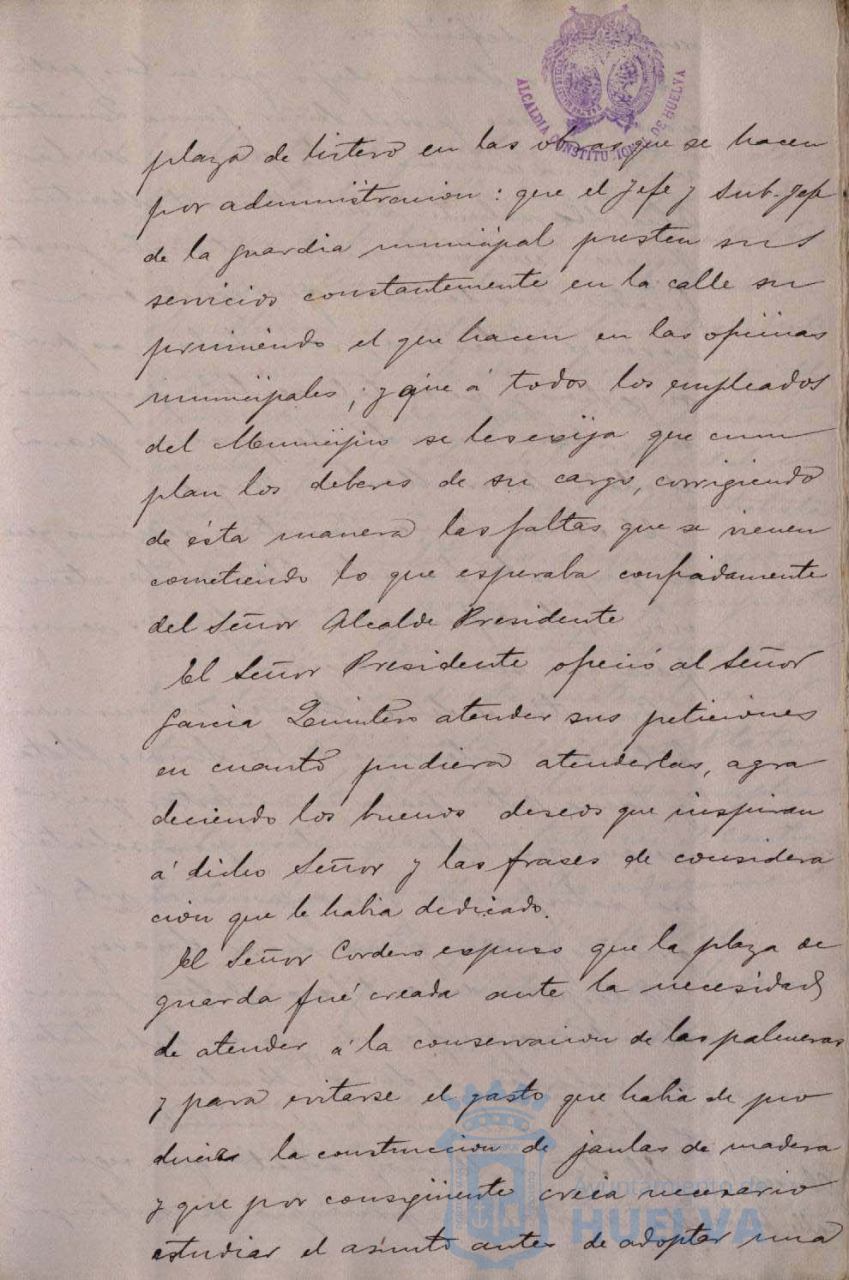 ALCALDIA CONSTITUCIONAL DE HUELVA
plaza de listero en las obras que se hacen
por administracion: que el Jefe y Sub-Jefe
de la guardia municipal presten sus
servicios constantemente en la calle su
primiendo el que hacen en las oficinas
municipales; y que á todos los empleados
del Municipio se les exija que cum
plan los deberes de su cargo, corrigiendo
de ésta manera las faltas que se vienen
cometiendo lo que esperaba confiadamente
del Señor Alcalde Presidente
El Señor Presidente ofreció al Señor
Garcia Quintero atender sus peticiones
en cuanto pudiera atenderlas, agra
deciendo los buenos deseos que inspiran
á dicho Señor y las frases de considera
cion que le habia dedicado.
El Señor Cordero expuso que la plaza de
guarda fué creada ante la necesidad
de atender á la conservacion de las palmeras
y para evitarse el gasto que habia de pro
ducir la construccion de jaulas de madera
y que por consigüiente creia necesario
estudiar el asunto antes de adoptar una
Ayuntamiento de
HUELVA